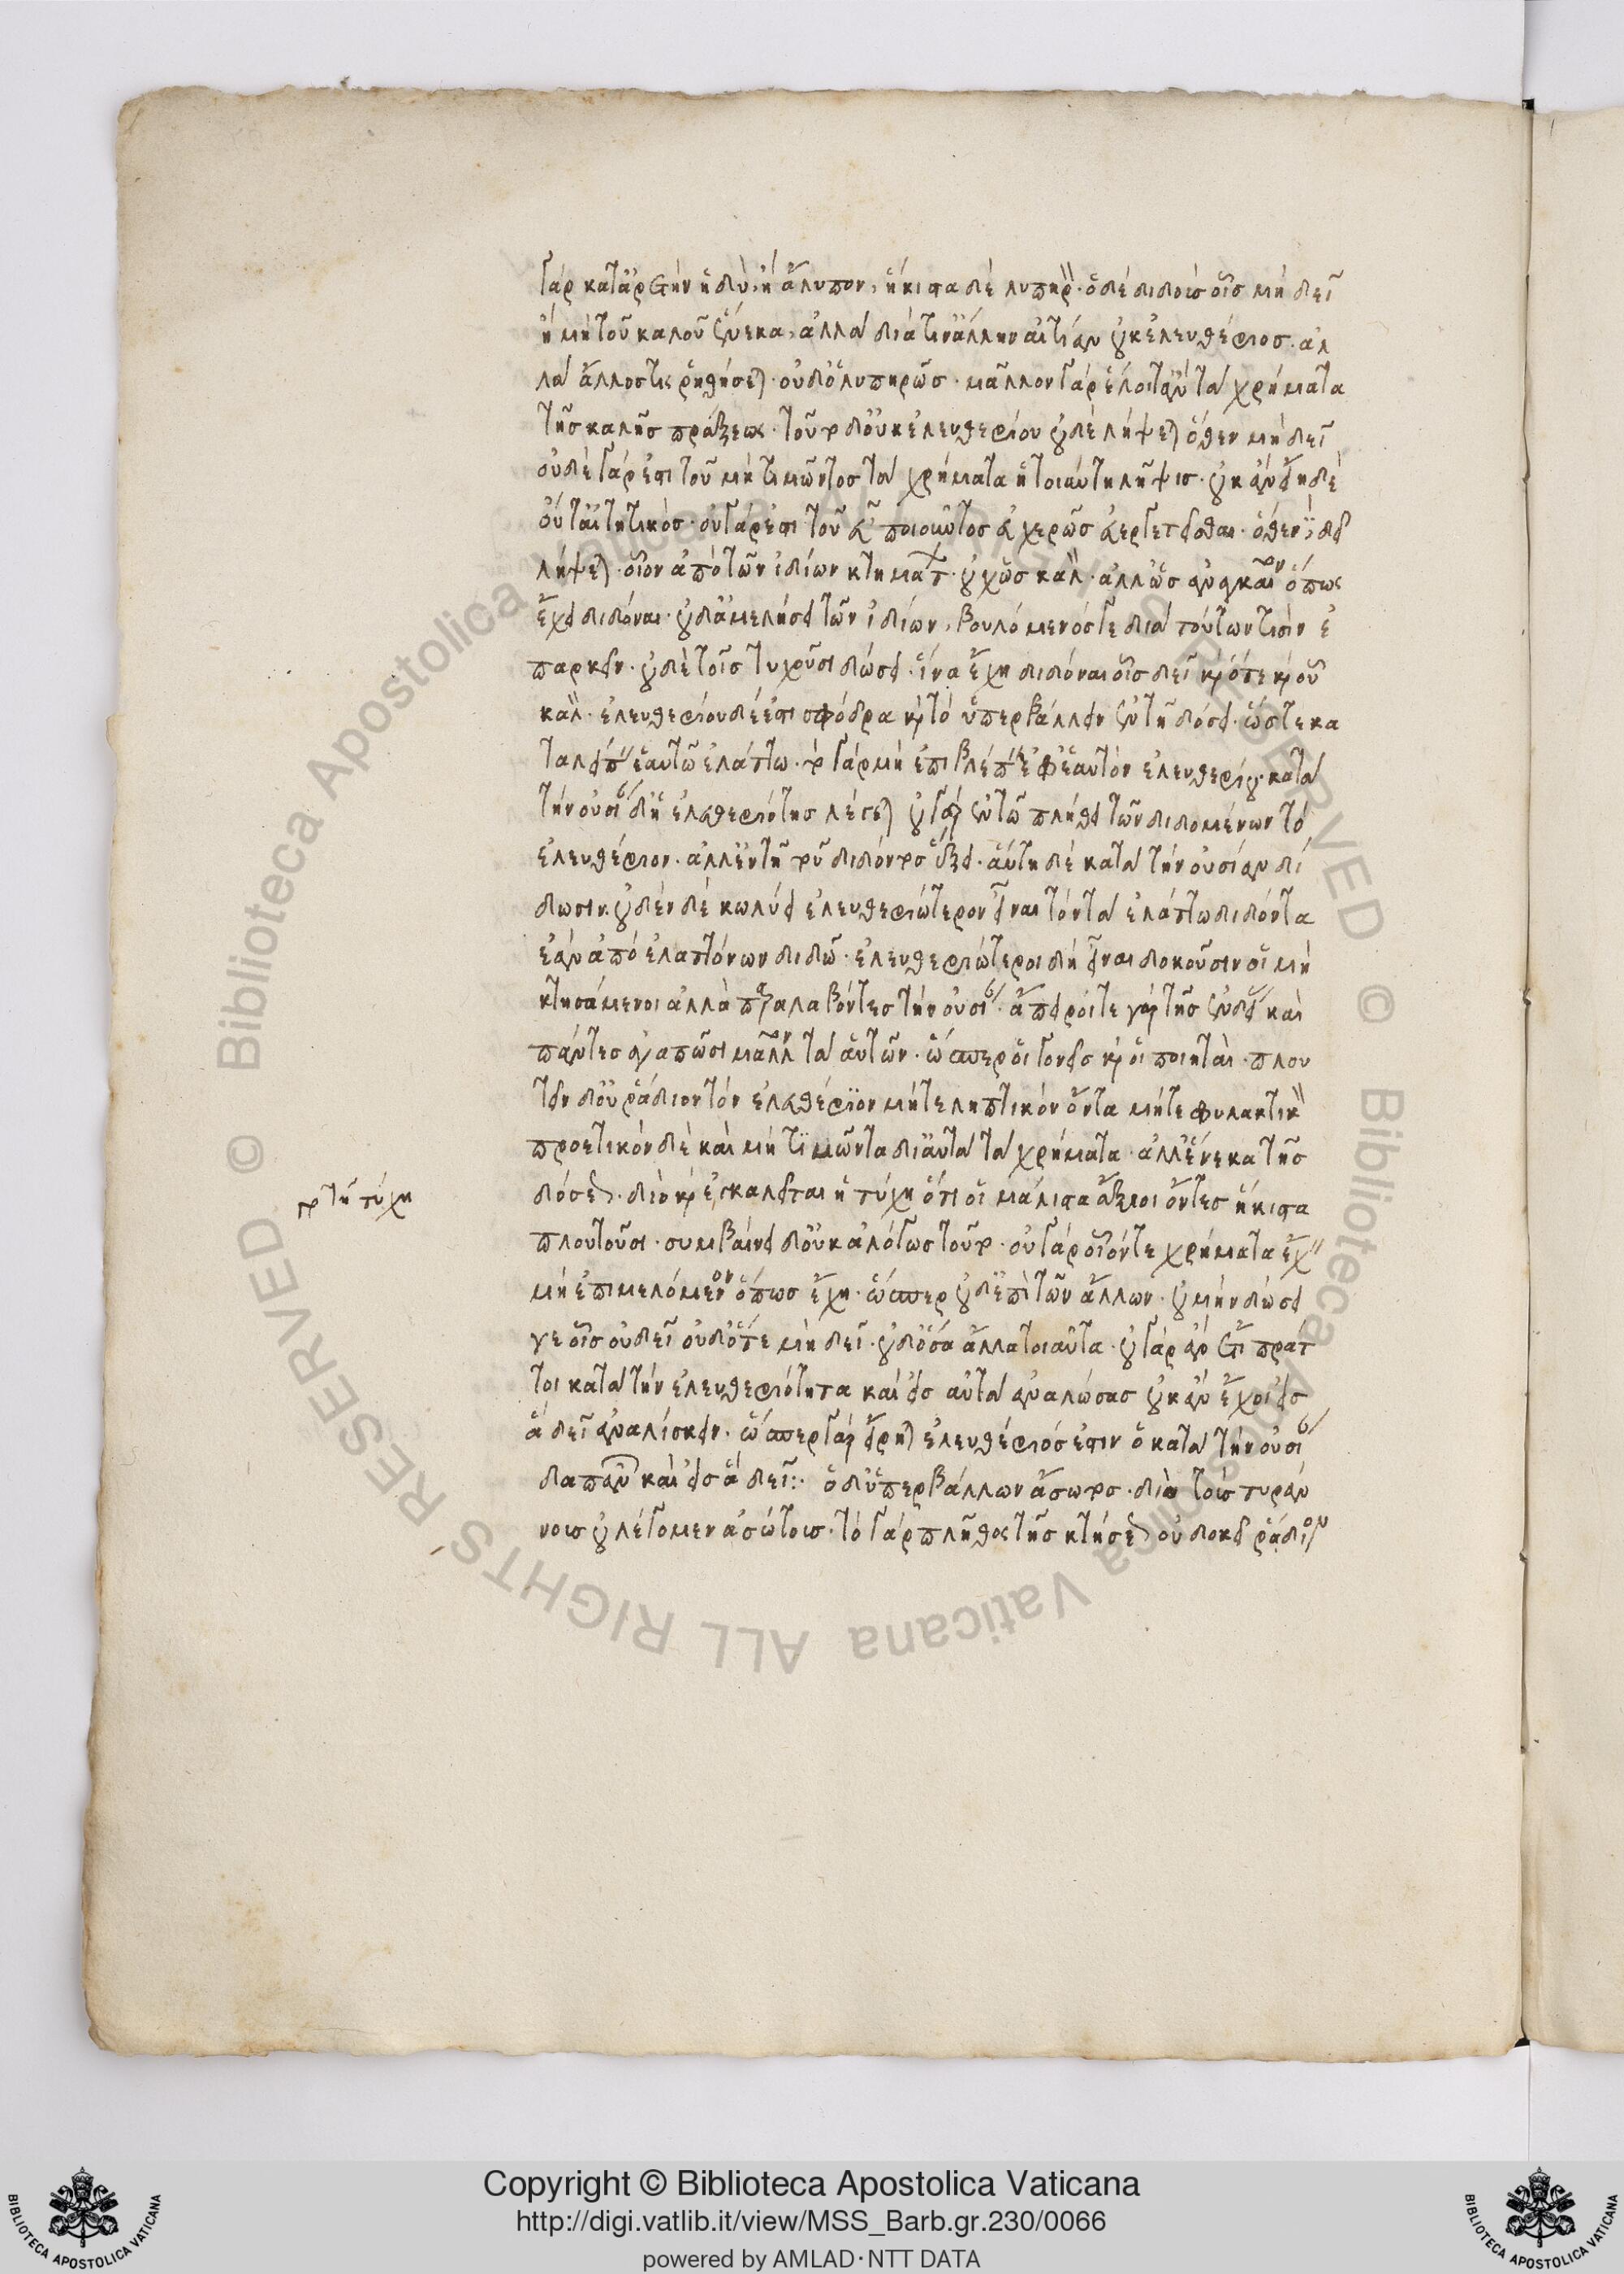 γὰρ κατ' ἀρετὴν ἡδὺ, ἢ ἄλυπον, ἥκιστα δὲ λυπηρόν. ὁ δὲ διδοὺς οἷς μὴ δεῖ
ἢ μὴ τοῦ καλοῦ ἕνεκα, ἀλλὰ διά τιν' ἄλλην αἰτίαν οὐκ ἐλευθέριος. ἀλ
λὰ ἄλλος τις ῥηθήσεται. οὐδ' ὁ λυπηρῶς. μᾶλλον γὰρ ἕλοιτ' ἂν τὰ χρήματα
τῆς καλῆς πράξεως. τοῦτο δ' οὐκ ἐλευθερίου οὐδὲ λήψεται ὅθεν μὴ δεῖ
οὐδὲ γάρ ἐστι τοῦ μὴ τιμῶντος τὰ χρήματα ἡ τοιαύτη λῆψις. οὐκ ἂν εἴη δὲ
οὐτ' αἰτητικός. οὐ γάρ ἐστι τοῦ εὖ ποιοῦντος εὐχερῶς εὐεργετεῖσθαι. ὅθεν δεῖ
λήψεται. οἷον ἀπὸ τῶν ἰδίων κτημάτων. οὐχ ὡς καλὸν. ἀλλ' ὡς ἀναγκαῖον ὅπως
ἔχει διδόναι. οὐδ' ἀμελήσει τῶν ἰδίων, βουλόμενός γε διὰ τούτων τισὶν ἐ
παρκεῖν. οὐδὲ τοῖς τυχοῦσι δώσει. ἵνα ἔχη διδόναι οἷς δεῖ καὶ ὅτε καὶ οὗ
καλὸν. ἐλευθερίου δέ ἐστι σφόδρα καὶ τὸ ὑπερβάλλειν ἐν τῆ δόσει. ὥστε κα
ταλείπειν ἑαυτῶ ἐλάττω. τὸ γὰρ μὴ ἐπιβλέπειν ἐφ' ἑαυτὸν ἐλευθερίου. κατὰ
τὴν οὐσίαν δ' ἡ ἐλευθεριότης λέγεται οὐ γὰρ ἐν τῶ πλήθει τῶν διδομένων τὸ
ἐλευθέριον. ἀλλ' ἐν τῆ τοῦ διδόντος ἕξει. αὕτη δὲ κατὰ τὴν οὐσίαν δί
δωσιν. οὐδὲν δὲ κωλύει ἐλευθεριώτερον εἶναι τὸν τὰ ἐλάττω διδόντα
ἐὰν ἀπὸ ἐλαττόνων διδῶ. ἐλευθεριώτεροι δὴ εἶναι δοκοῦσιν οἱ μὴ
κτησάμενοι ἀλλὰ παραλαβόντες τὴν οὐσίαν. ἄπειροί τε γὰρ τῆς ἐνδείας καὶ
πάντες ἀγαπῶσι μᾶλλον τὰ αὑτῶν. ὥσπερ οἱ γονεῖς καὶ οἱ ποιηταὶ. πλου
τεῖν δ' οὐ ῥάδιον τὸν ἐλευθέριον μήτε ληπτικὸν ὄντα μήτε φυλακτικὸν
προετικὸν δὲ καὶ μὴ τιμῶντα δι' αὐτὰ τὰ χρήματα. ἀλλ' ἕνεκα τῆς
δόσεως. διὸ καὶ ἐγκαλεῖται ἡ τύχη ὅτι οἱ μάλιστα ἄξιοι ὄντες ἥκιστα
πλουτοῦσι. συμβαίνει δ' οὐκ ἀλόγως τοῦτο. οὐ γὰρ οἷόν τε χρήματα ἔχειν
μὴ ἐπιμελόμενον ὅπως ἔχη. ὥσπερ οὐδ' ἐπὶ τῶν ἄλλων. οὐ μὴν δώσει
γε οἷς οὐ δεῖ οὐδ' ὅτε μὴ δεῖ. οὐδ' ὅσα ἄλλα τοιαῦτα. οὐ γὰρ ἂν ἔτι πράτ
τοι κατὰ τὴν ἐλευθεριότητα καὶ εἰς αὐτὰ ἀναλώσας οὐκ ἂν ἔχοι εἰς
ἃ δεῖ ἀναλίσκειν. ὥσπερ γὰρ εἴρηται ἐλευθέριός ἐστιν ὁ κατὰ τὴν οὐσίαν
δαπανῶν καὶ εἰς ἃ δεῖ: ὁ δ' ὑπερβάλλων ἄσωτος. διὰ τοὺς τυράν
νους οὐ λέγομεν ἀσώτους. τὸ γὰρ πλῆθος τῆς κτήσεως οὐ δοκεῖ ῥάδιον
τῆ τύχη
Copyright © Biblioteca Apostolica Vaticana
http://digi.vatlib.it/view/MSS_Barb.gr.230/0066
powered by AMLAD·NTT DATA
BIBLIOTECA APOSTOLICA VATICANA
BIBLIOTECA APOSTOLICA VATICANA
© Biblioteca Apostolica Vaticana ALL RIGHTS RESERVED
© Biblioteca Apostolica Vaticana ALL RIGHTS RESERVED